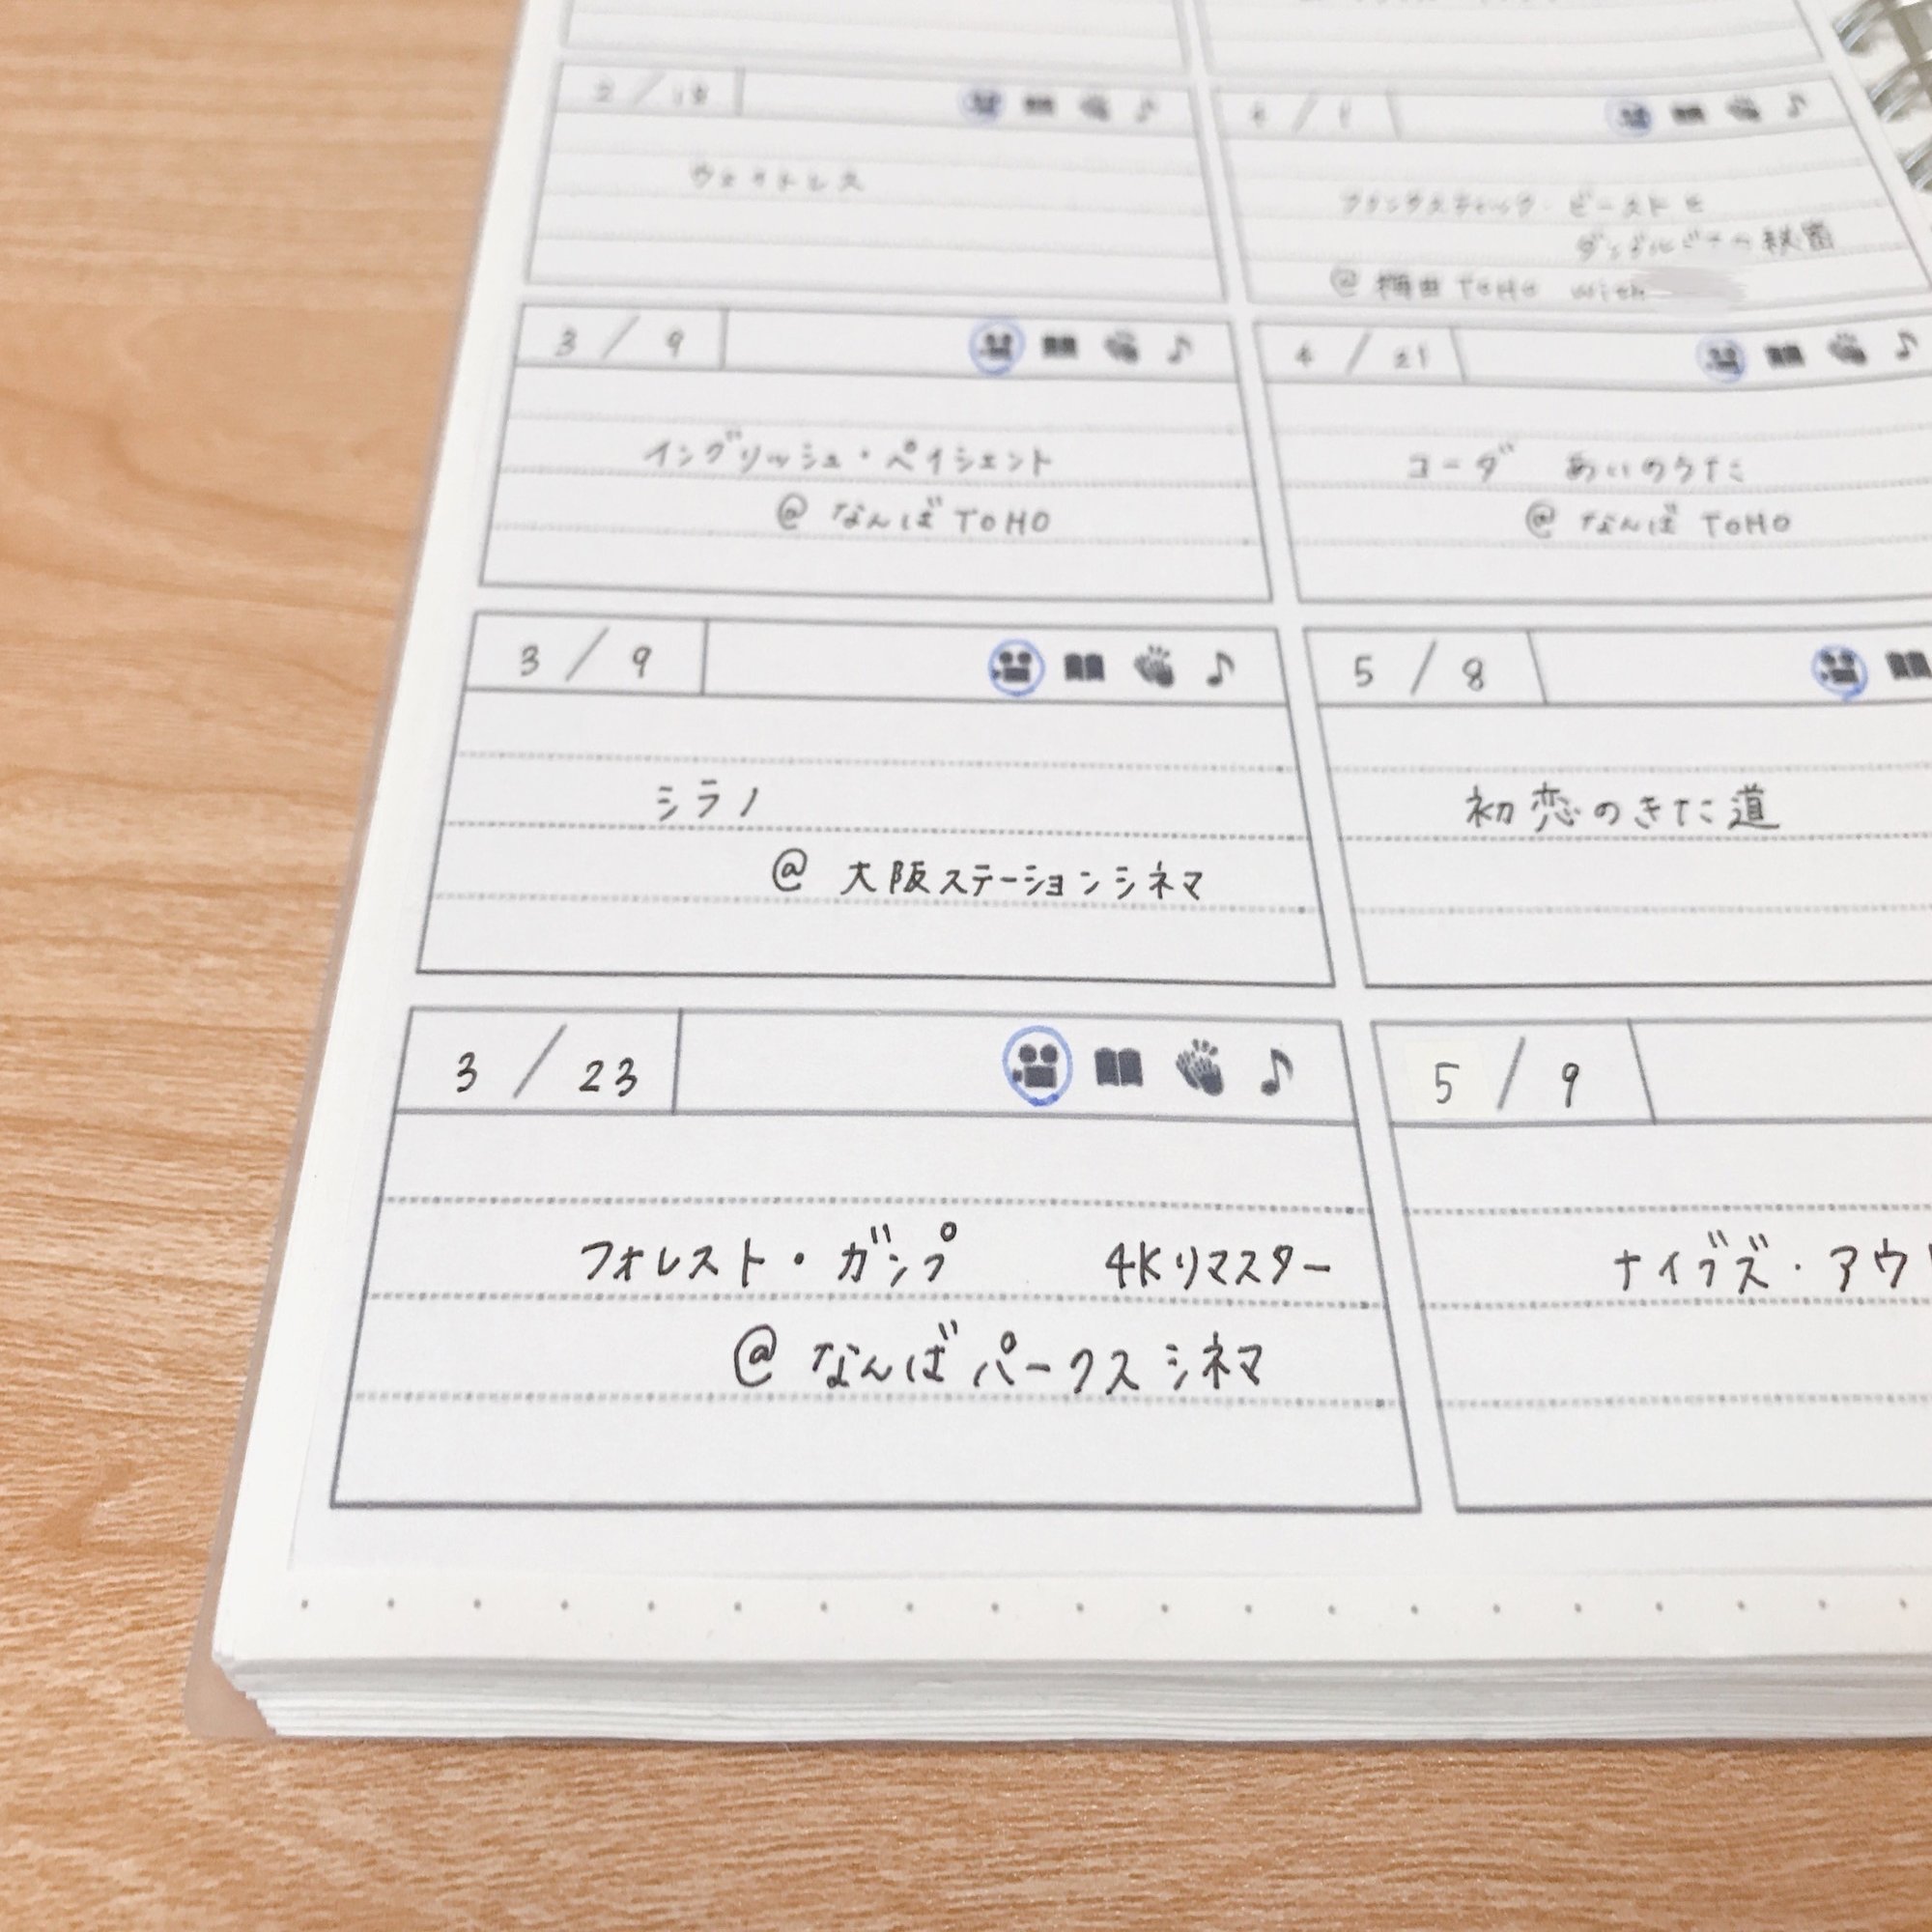 ウェイトレス
3 / 9
イングリッシュ・ペイシェント
@ なんばTOHO
3 / 9
シラノ
@ 大阪ステーションシネマ
3 / 23
フォレスト・ガンプ 4Kリマスター
@ なんばパークスシネマ
ファンタスティック・ビーストと
ダンブルドアの秘密
@ 梅田TOHO with
4 / 21
コーダ あいのうた
@ なんばTOHO
5 / 8
初恋のきた道
5 / 9
ナイブズ・アウ